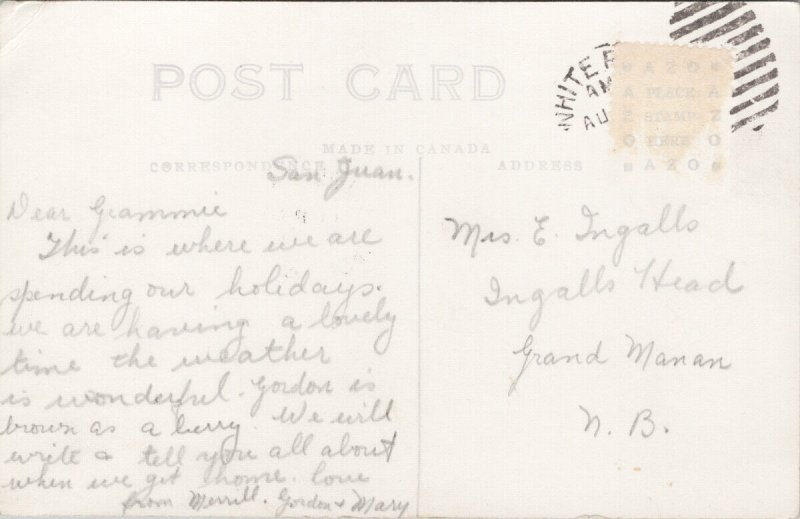 POST CARD
WHITE
AM
AU
AZO
A PLACE A
Z STAMP Z
O HERE O
AZO
MADE IN CANADA
CORRESPONDENCE
ADDRESS
San Juan.
Dear Grammie
This is where we are
spending our holidays.
we are having a lovely
time the weather
is wonderful. Gordon is
brown as a berry. We will
write & tell you all about
when we get home. love
from Merrill. Gordon & Mary
Mrs. E. Ingalls
Ingalls Head
Grand Manan
N. B.